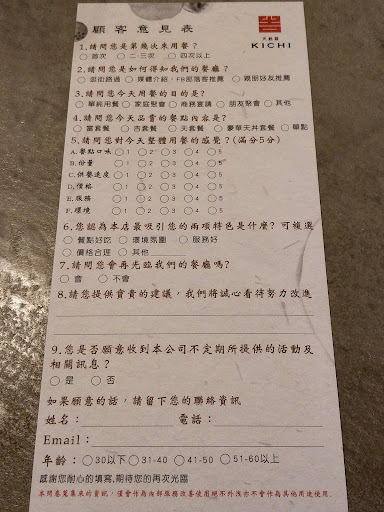 顧客意見表
天吉喜
KICHI
1.請問您是第幾次來用餐？
○首次 ○二.三次 ○四次以上
2.請問您是如何得知我們的餐廳？
○逛街路過 ○媒體介紹，FB部落客推薦 ○親朋好友推薦
3.請問您今天用餐的目的是？
○單純用餐 ○家庭聚會 ○商務宴請 ○朋友聚會 ○其他
4.請問您今天品嘗的餐點內容是？
○當套餐 ○吉套餐 ○天套餐 ○豪華天丼套餐 ○單點
5.請問您對今天整體用餐的感覺？(滿分5分)
A.餐點口味 ○1 ○2 ○3 ○4 ○5
B.份量 ○1 ○2 ○3 ○4 ○5
C.供餐速度 ○1 ○2 ○3 ○4 ○5
D.價格 ○1 ○2 ○3 ○4 ○5
E.服務 ○1 ○2 ○3 ○4 ○5
F.環境 ○1 ○2 ○3 ○4 ○5
6.您認為本店最吸引您的兩項特色是什麼? 可複選
○餐點好吃 ○環境氛圍 ○服務好
○價格合理 ○其他
7.請問您會再光臨我們的餐廳嗎?
○會 ○不會
8.請您提供寶貴的建議，我們將誠心看待努力改進
9.您是否願意收到本公司不定期所提供的活動及
相關訊息？
○是 ○否
如果願意的話，請留下您的聯絡資訊
姓名： 電話：
Email：
年齡：○30以下○31-40 ○41-50 ○51-60以上
感謝您耐心的填寫,期待您的再次光臨
本問卷蒐集來的資訊，僅會作為內部服務改善使用絕不外洩也不會作為其他用途使用.